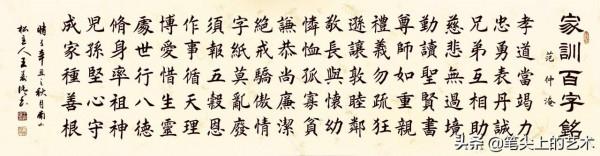 家訓百字銘
范仲淹
孝道當竭力
忠勇表丹誠
兄弟互相助
慈悲無過境
勤讀聖賢書
尊師如重親
禮義勿疏狂
遜讓敦睦鄰
敬長與懷幼
憐恤孤寡貧
謙恭尚廉潔
絕戒驕傲情
字紙莫亂廢
須報五穀恩
作事循天理
博愛惜生靈
處世行八德
脩身率祖神
兒孫堅心守
成家種善根
辛丑之秋月
头条 @笔尖上的艺术